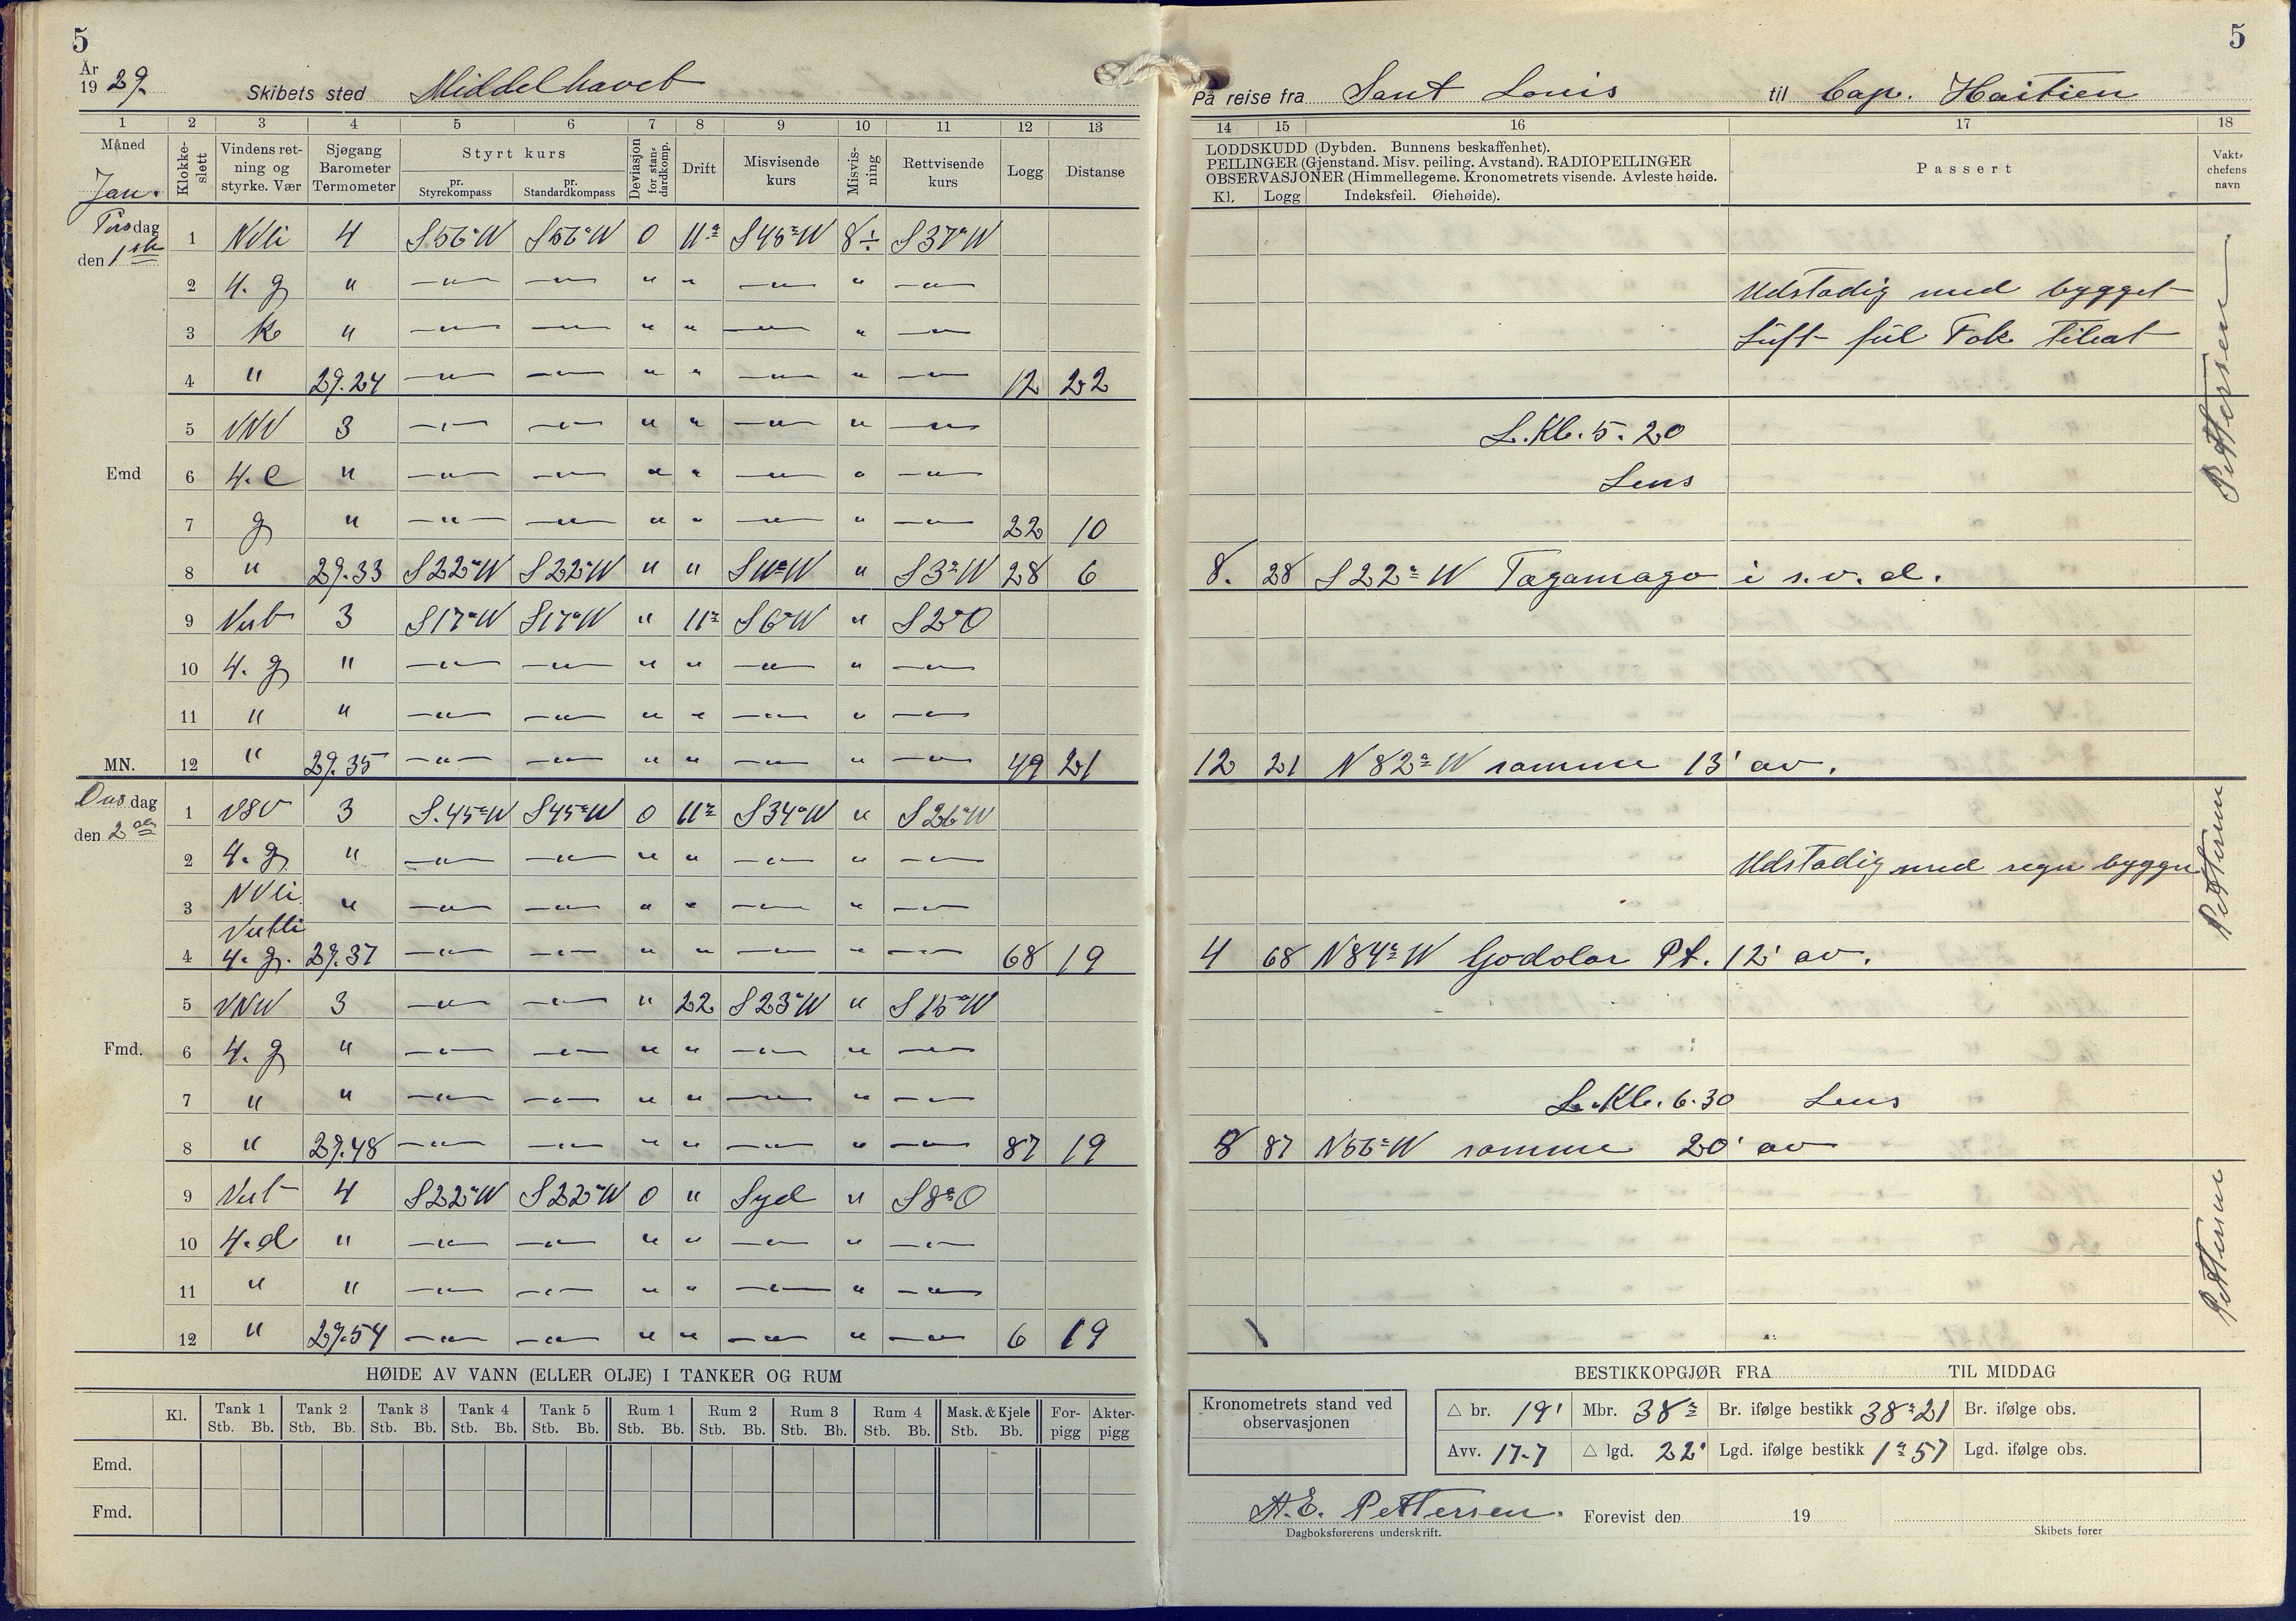 5
År
1929.
Skibets sted Middelhavet
1 2 3 4 5 6 7 8 9 10 11 12 13
Måned Klokkeslett Vindens retning og styrke. Vær Sjøgang Barometer Termometer Styrt kurs pr. Styrekompass pr. Standardkompass Deviasjon for standardkomp. Drift Misvisende kurs Misvisning Rettvisende kurs Logg Distanse
Jan.
Tirsdag den 1ste
1 NVli 4 S56°W S56°W 0 11° S45°W 8÷ S37°W
2 4. g " —"— —"— " " —"— " —"—
3 k " —"— —"— " " —"— " —"—
4 " 29.24 —"— —"— " " —"— " —"— 12 22
5 VNV 3 —"— —"— " " —"— " —"—
Emd 6 4. c " —"— —"— " " —"— " —"—
7 g " —"— —"— " " —"— " —"— 22 10
8 " 29.33 S22°W S22°W " " S11°W " S3°W 28 6
9 Vest 3 S17°W S17°W " 11° S6°W " S2°O
10 4. g " —"— —"— " " —"— " —"—
11 " " —"— —"— " " —"— " —"—
MN. 12 " 29.35 —"— —"— " " —"— " —"— 49 21
Onsdag den 2den
1 VSV 3 S.45°W S45°W 0 11° S34°W " S26°W
2 4. g " —"— —"— " " —"— " —"—
3 NVli " —"— —"— " " —"— " —"—
Vestli
4 4. g. 29.37 —"— —"— " " —"— " —"— 68 19
5 VNV 3 —"— —"— " 22 S23°W " S15°W
Fmd. 6 4. g " —"— —"— " " —"— " —"—
7 " " —"— —"— " " —"— " —"—
8 " 29.48 —"— —"— " " —"— " —"— 87 19
9 Vest 4 S22°W S22°W 0 " Syd " S8°O
10 4. d " —"— —"— " " —"— " —"—
11 " " —"— —"— " " —"— " —"—
12 " 29.54 —"— —"— " " —"— " —"— 6 19
HØIDE AV VANN (ELLER OLJE) I TANKER OG RUM
Kl. Tank 1 Tank 2 Tank 3 Tank 4 Tank 5 Rum 1 Rum 2 Rum 3 Rum 4 Mask. & Kjele For-pigg Akter-pigg
Stb. Bb. Stb. Bb. Stb. Bb. Stb. Bb. Stb. Bb. Stb. Bb. Stb. Bb. Stb. Bb. Stb. Bb. Stb. Bb.
Emd.
Fmd.
5
På reise fra Sant Louis til Cap. Haitien
14 15 16 17 18
LODDSKUDD (Dybden. Bunnens beskaffenhet).
PEILINGER (Gjenstand. Misv. peiling. Avstand). RADIOPEILINGER
OBSERVASJONER (Himmellegeme. Kronometrets visende. Avleste høide.
Kl. Logg Indeksfeil. Øiehøide).
Passert
Vakt-chefens navn
Ustadig med bygget
Luft
Pettersen
L. Kl. 5.20
Lens
8. 28 S22°W Tagamago i s.v.d.
12 21 N82°W samme 13' av.
Ustadig med regn bygger
Pettersen
4 68 N84°W Godolar Pt. 12' av.
L. Kl. 6.30 Lens
8 87 N56°W samme 20' av
Pettersen
BESTIKKOPGJØR FRA TIL MIDDAG
Kronometrets stand ved observasjonen
△ br. 19' Mbr. 38° Br. ifølge bestikk 38°21 Br. ifølge obs.
Avv. 17.7 △ lgd. 22' Lgd. ifølge bestikk 1°57 Lgd. ifølge obs.
A.E. Pettersen. Forevist den 19
Dagboksførerens underskrift. Skibets fører